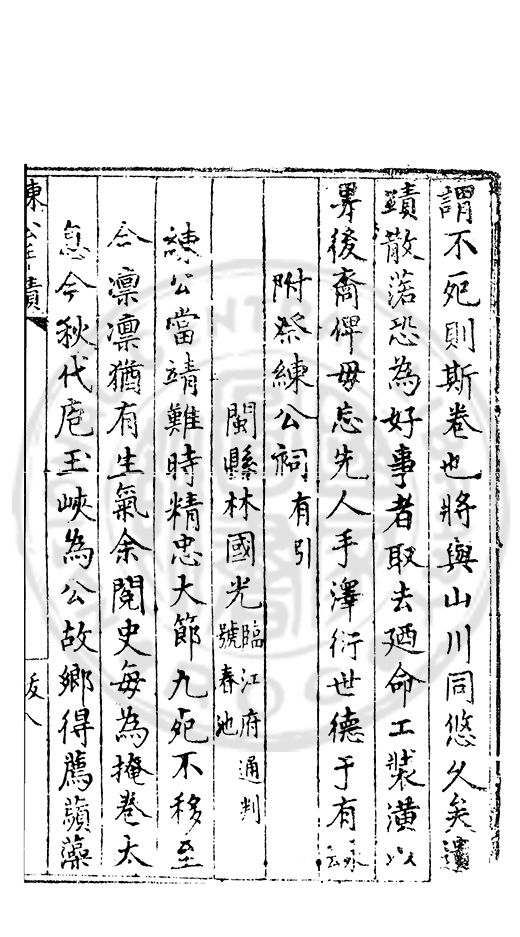 謂不死則斯卷也將與山川同悠久矣遺
蹟散落恐為好事者取去廼命工裝潢以
畀後裔俾毋忘先人手澤衍世德于有永云
附祭練公祠有引
閩縣林國光臨江府通判號春池
練公當靖難時精忠大節九死不移至
今凛凛猶有生氣余閱史每為掩卷太
息今秋代庖玉峽為公故鄉得薦蘋藻